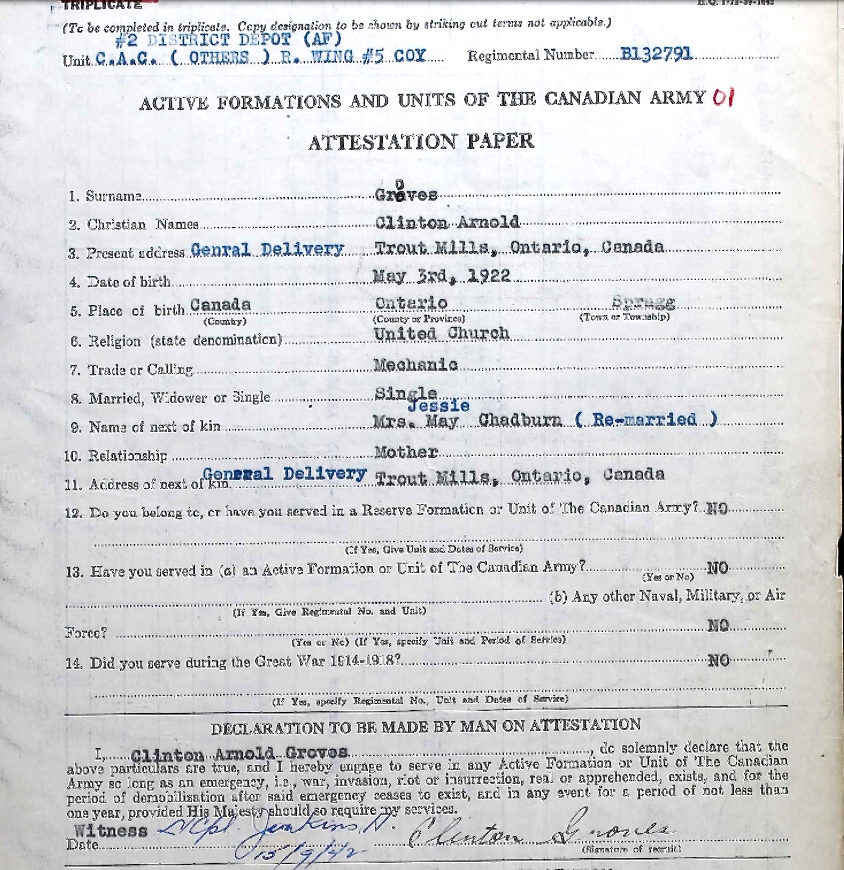 TRIPLICATE
(To be completed in triplicate. Copy designation to be shown by striking out terms not applicable.)
#2 DISTRICT DEPOT (AF)
Unit C.A.C. ( OTHERS ) R. WING #5 COY Regimental Number B132791
ACTIVE FORMATIONS AND UNITS OF THE CANADIAN ARMY 01
ATTESTATION PAPER
1. Surname Groves
2. Christian Names Clinton Arnold
3. Present address Genral Delivery Trout Mills, Ontario, Canada
4. Date of birth May 3rd, 1922
5. Place of birth Canada Ontario Spragg
(Country) (County or Province) (Town or Township)
6. Religion (state denomination) United Church
7. Trade or Calling Mechanic
8. Married, Widower or Single Single
Jessie
9. Name of next of kin Mrs. May Chadburn ( Re-married )
10. Relationship Mother
11. Address of next of kin General Delivery Trout Mills, Ontario, Canada
12. Do you belong to, or have you served in a Reserve Formation or Unit of The Canadian Army? NO
(If Yes, Give Unit and Dates of Service)
13. Have you served in (a) an Active Formation or Unit of The Canadian Army? NO
(Yes or No)
(b) Any other Naval, Military, or Air
(If Yes, Give Regimental No. and Unit)
Force? NO
(Yes or No) (If Yes, specify Unit and Period of Service)
14. Did you serve during the Great War 1914-1918? NO
(If Yes, specify Regimental No., Unit and Dates of Service)
DECLARATION TO BE MADE BY MAN ON ATTESTATION
I, Clinton Arnold Groves, do solemnly declare that the
above particulars are true, and I hereby engage to serve in any Active Formation or Unit of The Canadian
Army so long as an emergency, i.e., war, invasion, riot or insurrection, real or apprehended, exists, and for the
period of demobilization after said emergency ceases to exist, and in any event for a period of not less than
one year, provided His Majesty should so require my services.
Witness L/Cpl. Jenkins Clinton Groves
Date 15/9/42 (Signature of recruit)